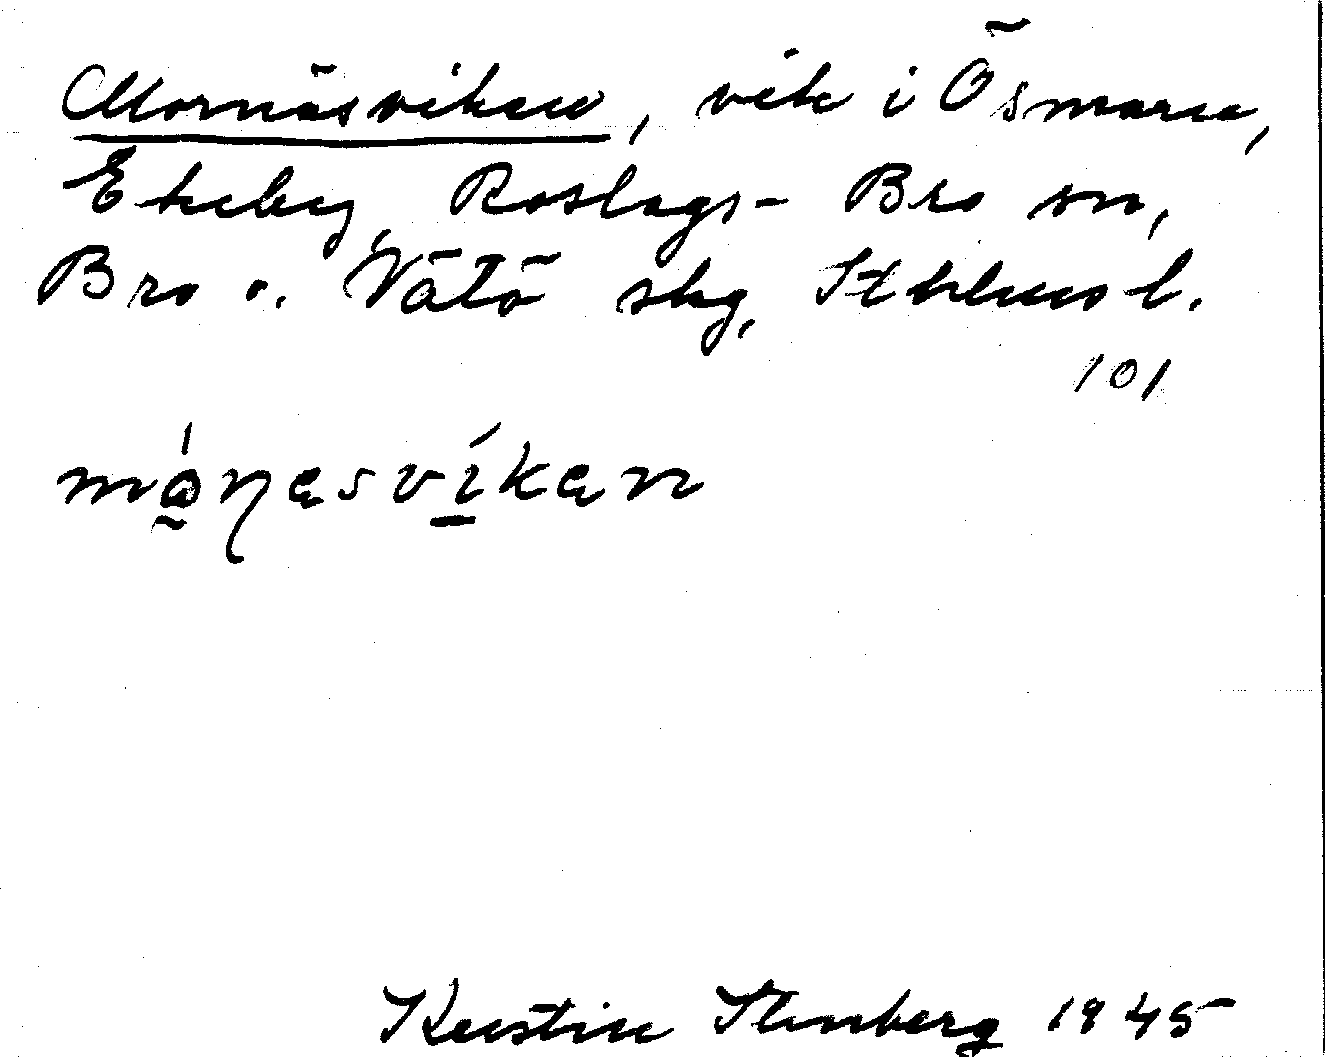 Mornäsviken, vik i Ösmaren,
Ekeby, Roslags-Bro sn,
Bro o. Vätö skg, Sthlms l.
101
mǫ̀ɳesvíken
Kerstin Stenberg 1945